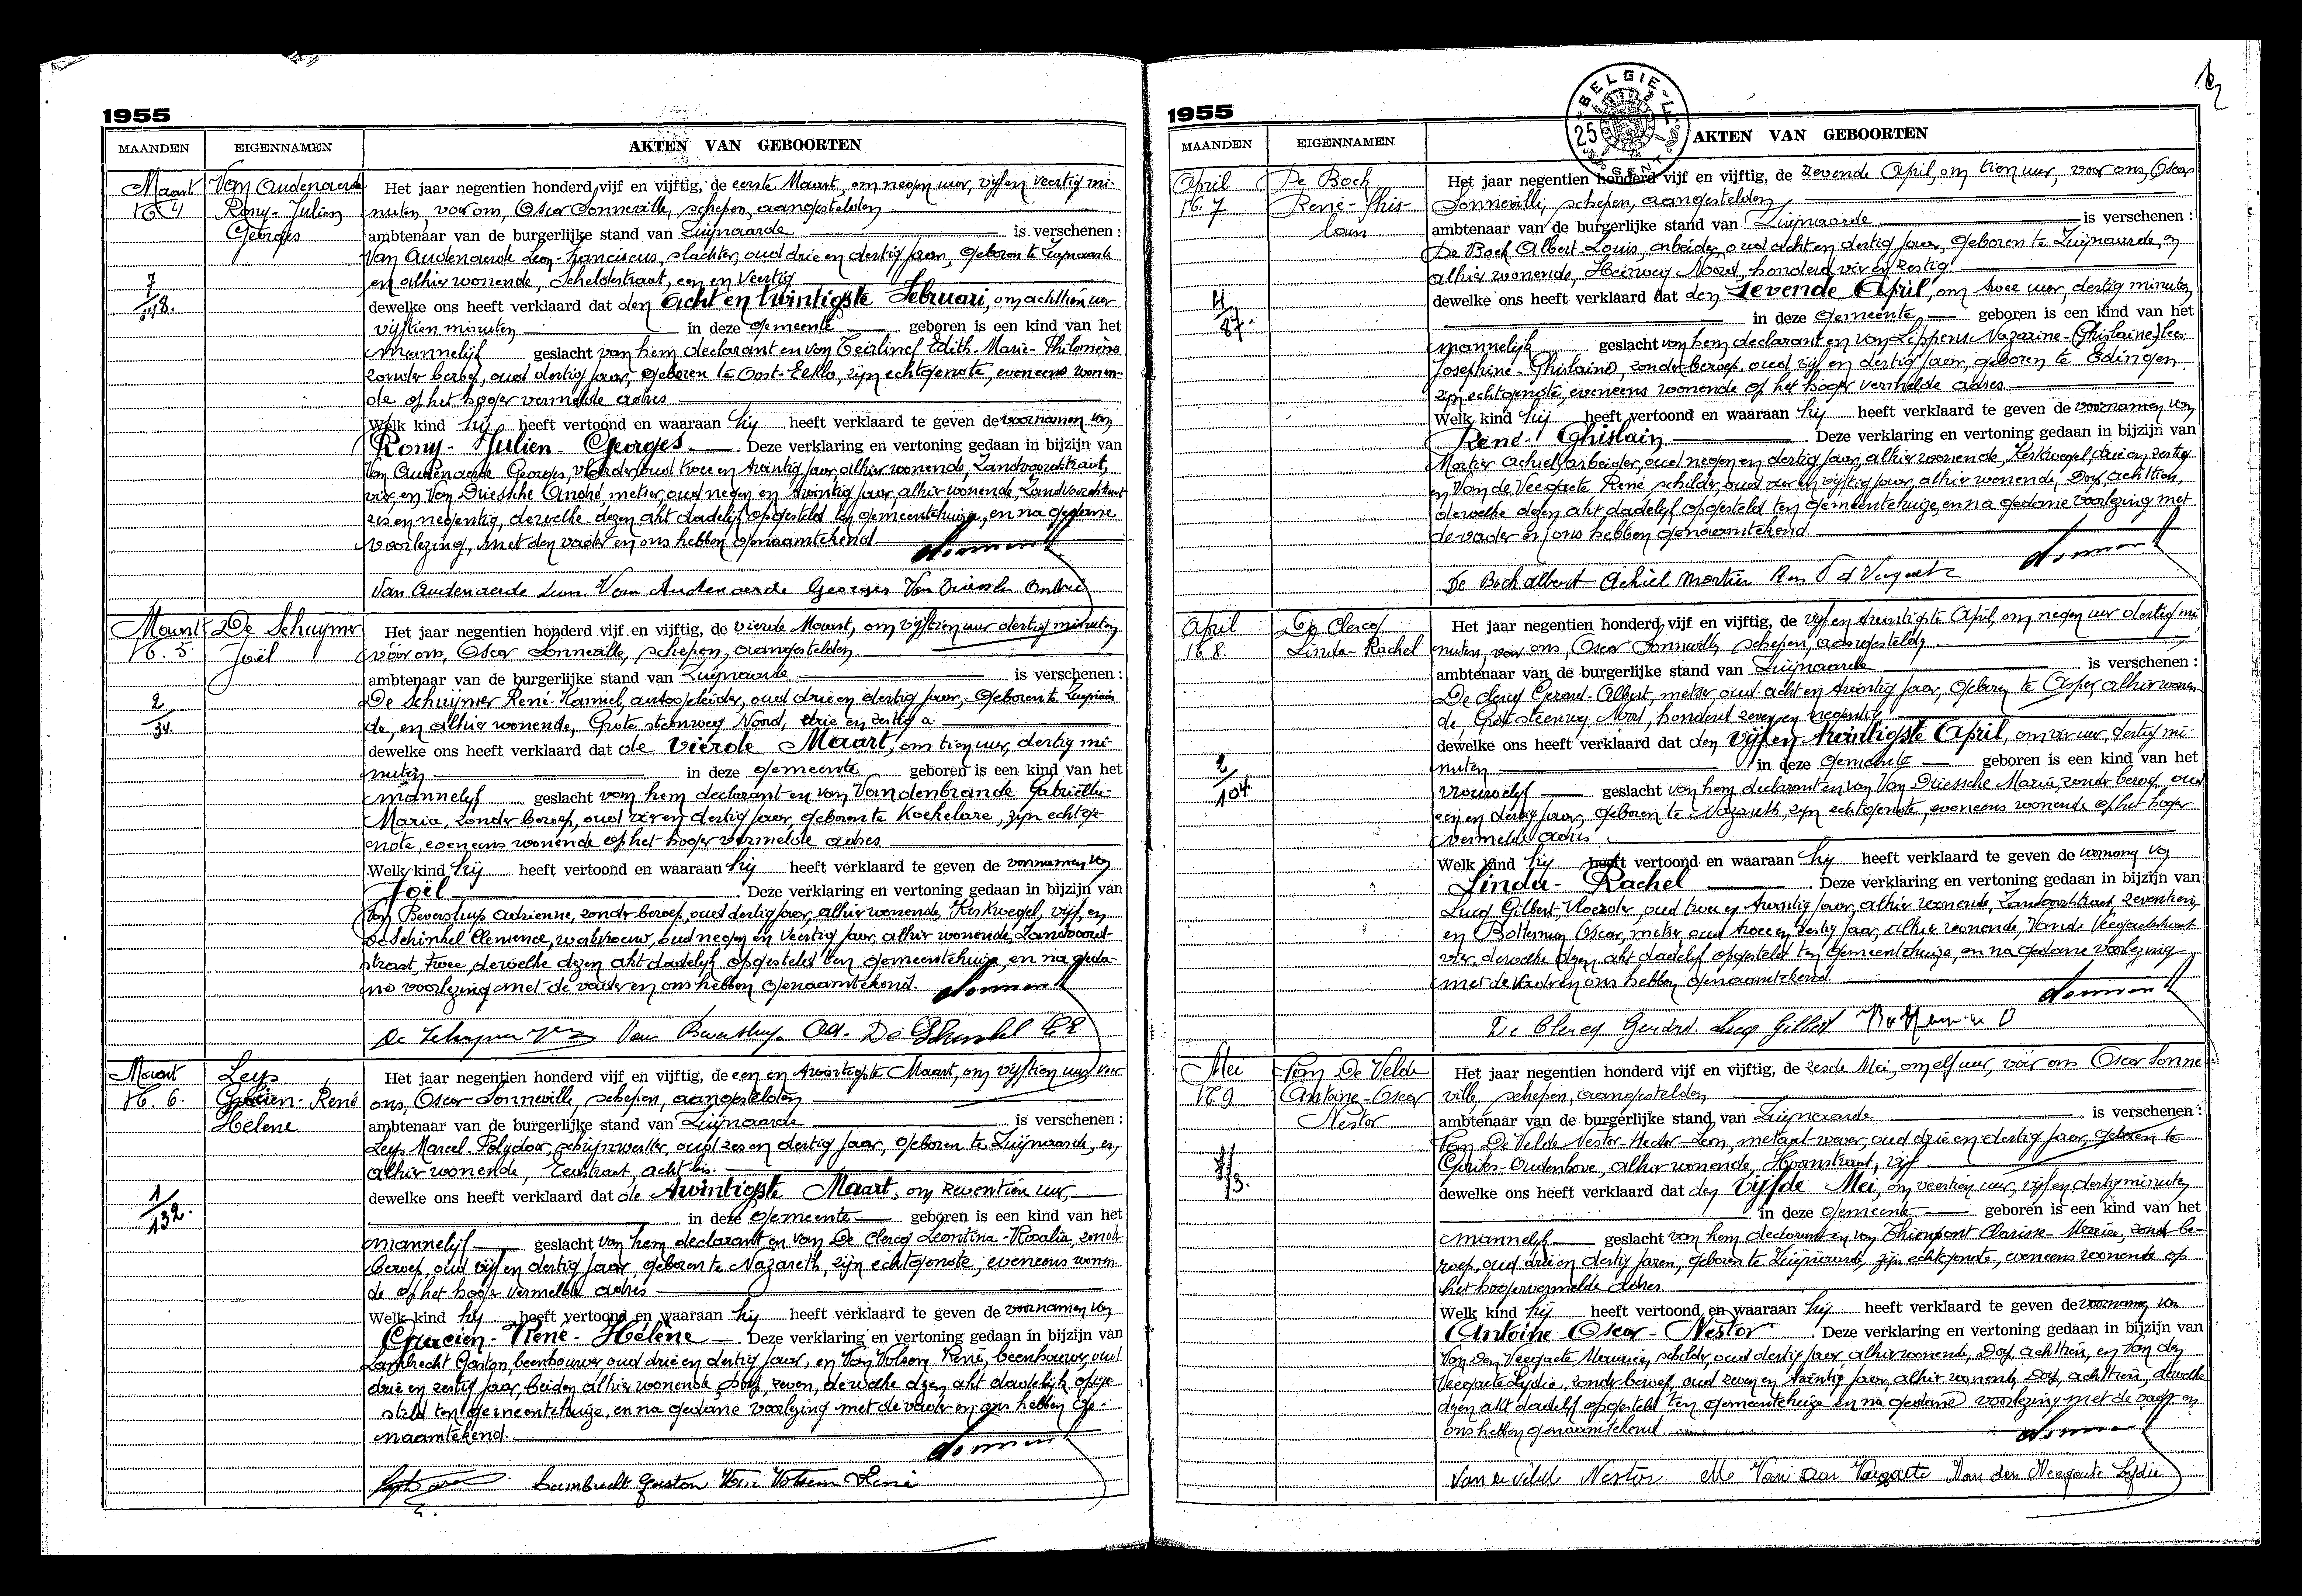 1955
MAANDEN
EIGENNAMEN
AKTEN VAN GEBOORTEN
Maart
N. 4
Van Oudenaerde
Rony-Julien
Georges
7
/
148.
Het jaar negentien honderd vijf en vijftig, de eerste Maart, om negen uur, vijf en veertig mi-
nuten, voor ons, Oscar Sonneville, schepen, aangestelden
ambtenaar van de burgerlijke stand van Zwijnaarde is verschenen :
Van Oudenaerde Leon-Franciscus, slachter, oud drie en dertig jaar, geboren te Zwijnaarde
en alhier wonende, Scheldestraat, een en veertig
dewelke ons heeft verklaard dat den acht en twintigste Februari, om achttien uur
vijftien minuten in deze gemeente geboren is een kind van het
mannelijk geslacht van hem declarant en van Teirlinck Edith-Marie-Philomène
zonder beroep, oud dertig jaar, geboren te Oost-Eeklo, zijn echtgenote, eveneens wonen-
de op het hoger vermelde adres
Welk kind hij heeft vertoond en waaraan hij heeft verklaard te geven de voornamen van
Rony-Julien-Georges. Deze verklaring en vertoning gedaan in bijzijn van
Van Oudenaerde Georges, vloerder, oud twee en twintig jaar, alhier wonende, Zandvoordestraat,
vier, en Van Driessche André, metser, oud negen en twintig jaar, alhier wonende, Zandvoordestraat
zes en negentig, dewelke dezen akt dadelijk opgesteld ten gemeentehuize, en na gedane
voorlezing, met den vader en ons hebben genaamtekend
Van Oudenaerde Leon. Van Oudenaerde Georges Van Driessche André
Maart
N. 5.
De Schuymer
Joël
2
/
34.
Het jaar negentien honderd vijf en vijftig, de vierde Maart, om vijftien uur dertig minuten
vóór ons, Oscar Sonneville, schepen, aangestelden
ambtenaar van de burgerlijke stand van Zwijnaarde is verschenen :
De Schuymer René-Kamiel, autogeleider, oud drie en dertig jaar, geboren te Zwijnaar-
de, en alhier wonende, Grote steenweg Noord, drie en zestig a
dewelke ons heeft verklaard dat de vierde Maart, om tien uur, dertig mi-
nuten in deze gemeente geboren is een kind van het
mannelijk geslacht van hem declarant en van Vandenbrande Gabriëlle-
Maria, zonder beroep, oud vier en dertig jaar, geboren te Koekelare, zijn echtge-
note, eveneens wonende op het hoger vermelde adres
Welk kind hij heeft vertoond en waaraan hij heeft verklaard te geven de voornamen van
Joël. Deze verklaring en vertoning gedaan in bijzijn van
Van Beverslups Adrienne, zonder beroep, oud dertig jaar, alhier wonende, Kerkwegel, vijf, en
De Schinkel Clemence, werkvrouw, oud negen en veertig jaar, alhier wonende, Zandvoorde-
straat, twee, dewelke dezen akt dadelijk opgesteld ten gemeentehuize, en na geda-
ne voorlezing met de vader en ons hebben genaamtekend.
Maart
N. 6.
Leys
Gracien-René
Helene
1
/
132.
Het jaar negentien honderd vijf en vijftig, de een en twintigste Maart, om vijftien uur, voor
ons, Oscar Sonneville, schepen, aangestelden
ambtenaar van de burgerlijke stand van Zwijnaarde is verschenen :
Leys Marcel-Polydoor, schrijnwerker, oud zes en dertig jaar, geboren te Zwijnaarde, en,
alhier wonende, acht bis.
dewelke ons heeft verklaard dat de twintigste Maart, om zeventien uur,
in deze gemeente geboren is een kind van het
mannelijk geslacht van hem declarant en van De Clercq Leontina-Rosalia, zonder
beroep, oud vijf en dertig jaar, geboren te Nazareth, zijn echtgenote, eveneens wonen-
de op het hoger vermelde adres
Welk kind hij heeft vertoond en waaraan hij heeft verklaard te geven de voornamen van
Gracien-René-Hélène. Deze verklaring en vertoning gedaan in bijzijn van
Lambrecht Gaston, beenhouwer, oud drie en dertig jaar, en Van Volsem René, beenhouwer, oud
drie en zestig jaar, beiden alhier wonende, Dorp, zeven, dewelke dezen akt dadelijk opge-
steld ten gemeentehuize, en na gedane voorlezing met de vader en ons hebben ge-
naamtekend.
Lambrecht Gaston Van Volsem René
1955
BELGIE
25
GENT
MAANDEN
EIGENNAMEN
AKTEN VAN GEBOORTEN
April
N. 7
De Bock
René-Ghis-
lain
4
/
87.
Het jaar negentien honderd vijf en vijftig, de zevende April, om tien uur, voor ons, Oscar
Sonneville, schepen, aangestelden
ambtenaar van de burgerlijke stand van Zwijnaarde is verschenen :
De Bock Albert-Louis, arbeider, oud acht en dertig jaar, geboren te Zwijnaarde, en
alhier wonende, Heirweg Noord, honderd vier en zestig.
dewelke ons heeft verklaard dat den zevende April, om twee uur, dertig minuten
in deze gemeente, geboren is een kind van het
mannelijk geslacht van hem declarant en van Lippens Nazarine-(Ghislaine)
Josephine-Ghislaine, zonder beroep, oud vijf en dertig jaar, geboren te Edingen
zijn echtgenote, eveneens wonende op het hoger vermelde adres.
Welk kind hij heeft vertoond en waaraan hij heeft verklaard te geven de voornamen van
René-Ghislain. Deze verklaring en vertoning gedaan in bijzijn van
Mortier Achiel, arbeider, oud negen en dertig jaar, alhier wonende, Kerkwegel, drie en zestig
en Van de Veegaete René, schilder, oud vier en vijftig jaar, alhier wonende, Dorp, achttien,
dewelke dezen akt dadelijk opgesteld ten gemeentehuize, en na gedane voorlezing met
de vader en ons hebben genaamtekend.
De Bock albert Achiel Mortier
April
N. 8.
De Clercq
Linda-Rachel
2
/
104
Het jaar negentien honderd vijf en vijftig, de vijf en twintigste April, om negen uur dertig mi-
nuten, voor ons, Oscar Sonneville, schepen, aangestelden
ambtenaar van de burgerlijke stand van Zwijnaarde is verschenen :
De Clercq Gerard-Albert, metser, oud acht en twintig jaar, geboren te Asper, alhier wonen-
de, Grote steenweg Noord, honderd zeven en negentig
dewelke ons heeft verklaard dat den vijf en twintigste April, om vier uur, dertig mi-
nuten in deze gemeente geboren is een kind van het
vrouwelijk geslacht van hem declarant en van Van Driessche Maria, zonder beroep, oud
een en dertig jaar, geboren te Nazareth, zijn echtgenote, eveneens wonende op het hoger
vermelde adres.
Welk kind hij heeft vertoond en waaraan hij heeft verklaard te geven de voornamen van
Linda-Rachel. Deze verklaring en vertoning gedaan in bijzijn van
Lucq Gilbert, vloerder, oud twee en twintig jaar, alhier wonende, Zandvoordestraat, zeventien,
en Bolterman Oscar, metser, oud twee en zestig jaar, alhier wonende, Van de Veegaetestraat
vier, dewelke dezen akt dadelijk opgesteld ten gemeentehuize, en na gedane voorlezing
met de vader en ons hebben genaamtekend.
De Clercq Gerard. Lucq Gilbert
Mei
N. 9
Van De Velde
Antoine-Oscar
Nestor
Het jaar negentien honderd vijf en vijftig, de zesde Mei, om elf uur, vóór ons Oscar Sonne
ville, schepen, aangestelden
ambtenaar van de burgerlijke stand van Zwijnaarde is verschenen :
Van De Velde Nestor-Hector-Leon, metaal-wever, oud drie en dertig jaar, geboren te
Goriks-Oudenhove, alhier wonende, Hoornstraat, vijf
dewelke ons heeft verklaard dat den vijfde Mei, om veertien uur, vijf en dertig minuten
in deze gemeente geboren is een kind van het
mannelijk geslacht van hem declarant en van Thienpont Clarisse-Maria, zonder be-
roep, oud drie en dertig jaren, geboren te Zwijnaarde, zijn echtgenote, eveneens wonende op
het hogervermelde adres
Welk kind hij heeft vertoond en waaraan hij heeft verklaard te geven de voornamen van
Antoine-Oscar-Nestor. Deze verklaring en vertoning gedaan in bijzijn van
Van Den Veegaete Maurice, schilder, oud dertig jaar, alhier wonende, Dorp, achttien, en Van den
Veegaete Lydie, zonder beroep, oud zeven en twintig jaar, alhier wonende, Dorp, achttien, dewelke
dezen akt dadelijk opgesteld ten gemeentehuize en na gedane voorlezing met de vader en
ons hebben genaamtekend
Van de Velde Nestor M Van den Veegaete Van den Veegaete Lydie